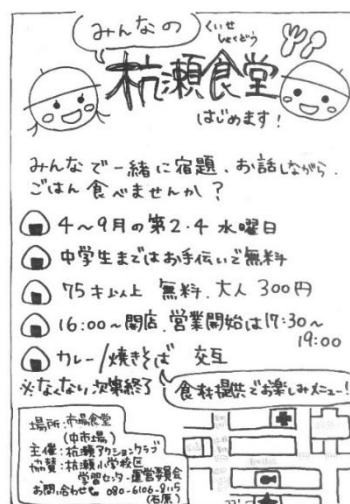 みんなの
くいせ
しょくどう
杭瀬食堂
はじめます!
みんなで一緒に宿題、お話しながら、
ごはん食べませんか?
4~9月の第2・4 水曜日
中学生まではお手伝いで無料
75才以上 無料、大人 300円
16:00~開店、営業開始は17:30~
19:00
カレー/焼きそば 交互
※なくなり次第終了
食料提供でお楽しみメニュー!
場所:市場食堂
(中市場)
主催:杭瀬アクションクラブ
協賛:杭瀬小学校区
学習センター運営委員会
お問い合わせ 080-6106-8115
(石原)